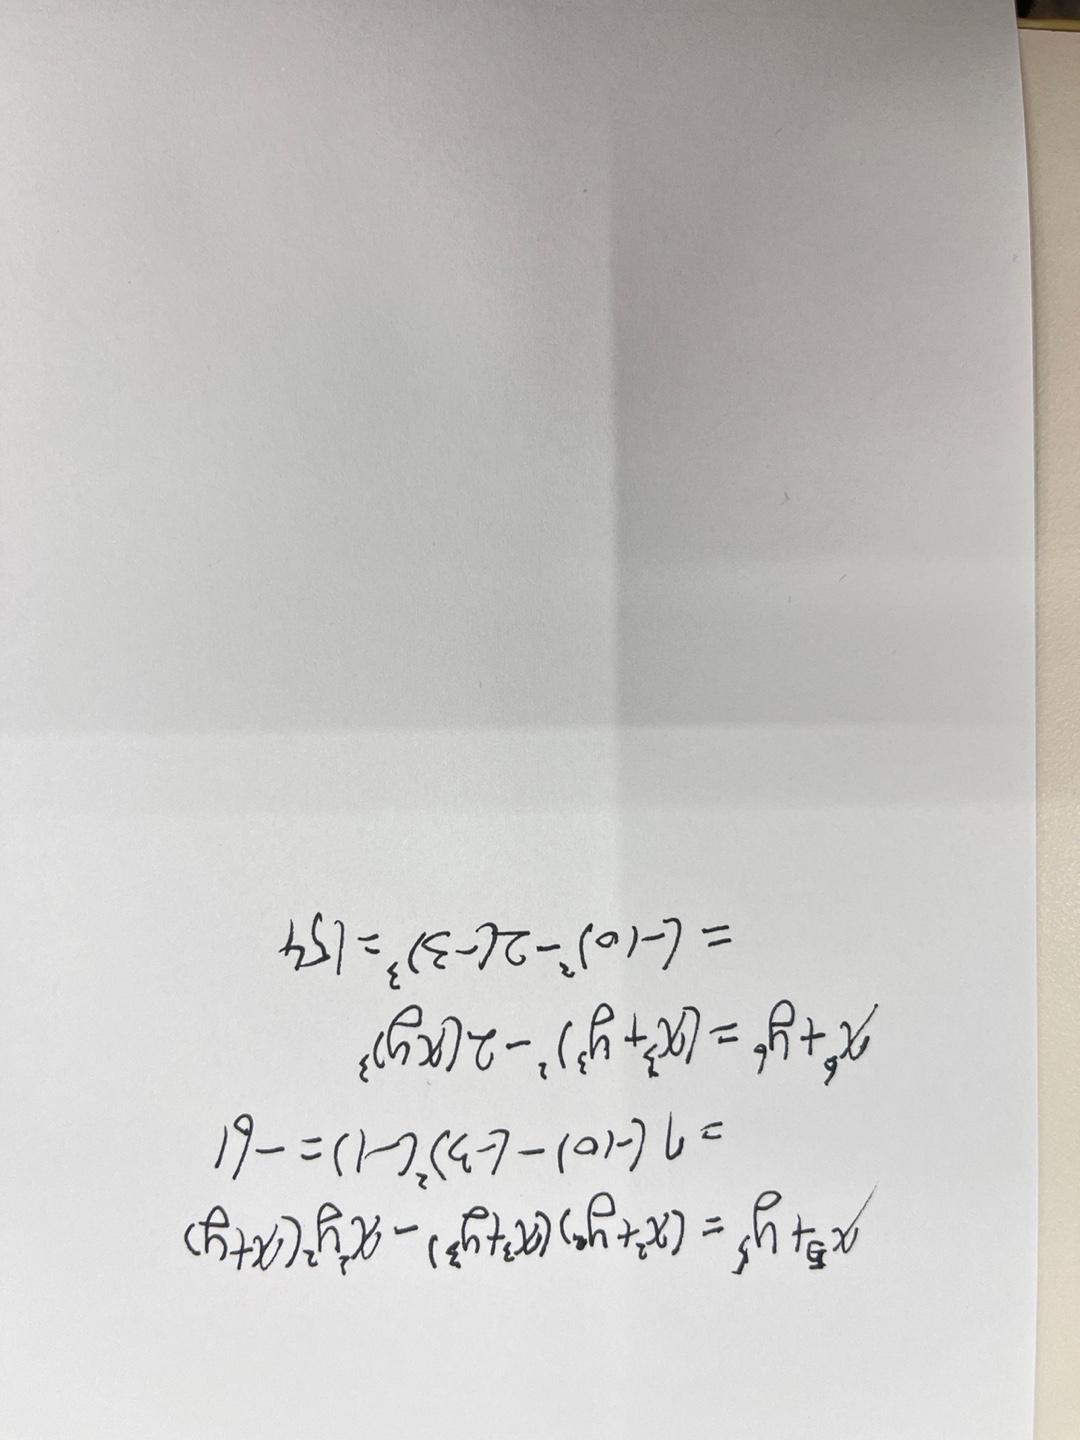 x⁵+y⁵ = (x²+y²)(x³+y³)-x²y²(x+y)
= 7(-10)-(-3)²(-1) = -61
x⁶+y⁶ = (x³+y³)²-2(xy)³
= (-10)²-2(-3)³ = 154